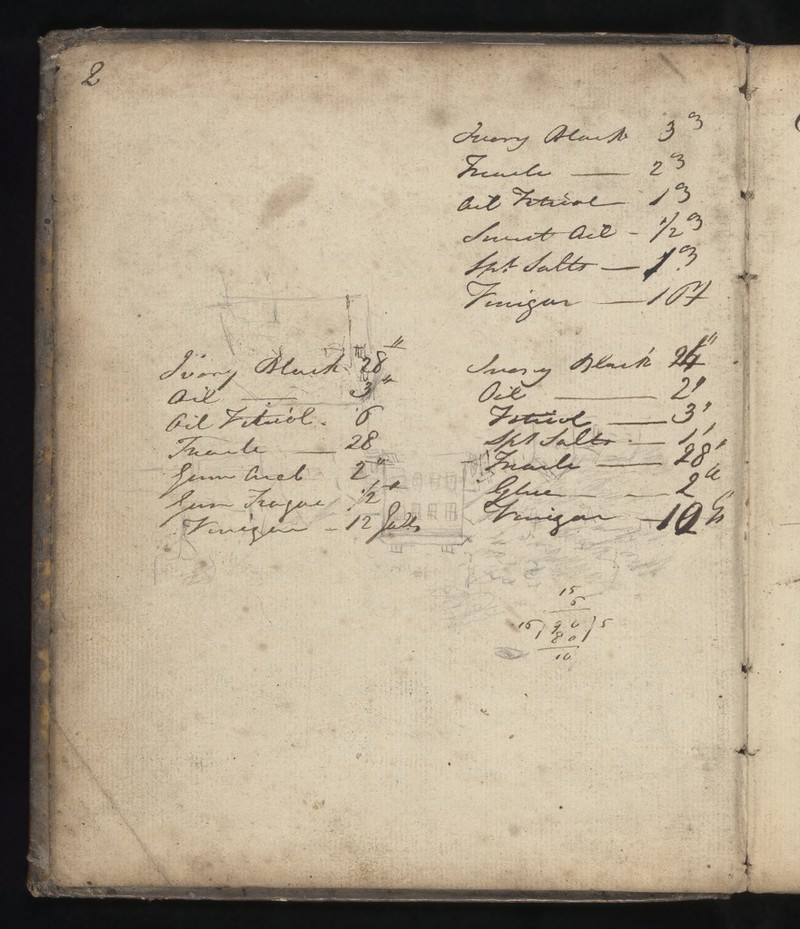 2
Ivory Black 3 ℥
Treacle — 2 ℥
Oil Vitriol 1 ℥
Sweet Oil - 1/2 ℥
Spt Salts — 1 ℥
Vinegar — 1
Ivory Black 28"
Oil — 3"
Oil Vitriol. 6
Treacle — 28
Gum Arab 2"
Gum Tragac 1/2"
Vinegar - 12 Galls
Ivory Black 24"
Oil — 2"
Vitriol — 3"
Spt Salts — 1"
Treacle — 28"
Glue — 2"
Vinegar — 10 Gs
15
6
16) 90 ) 5
80
10